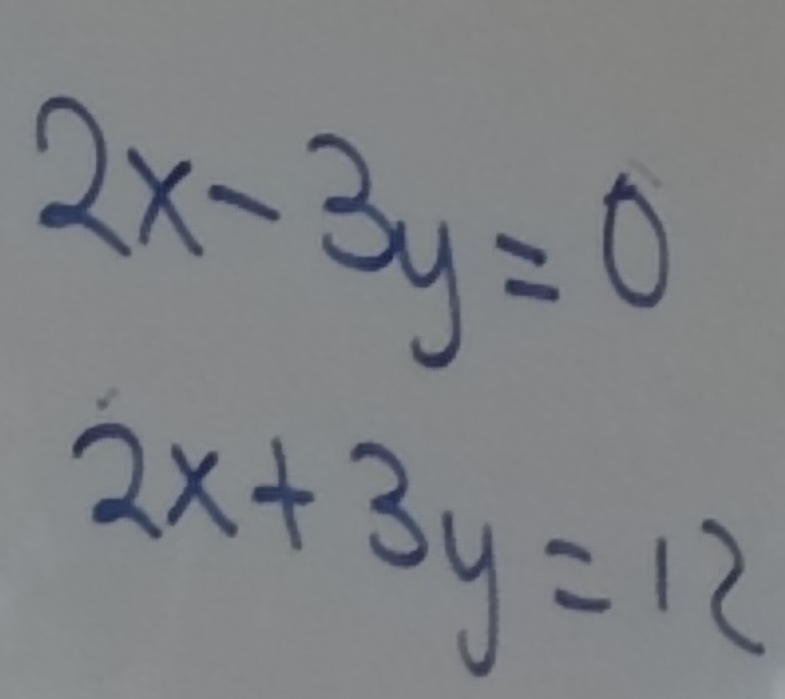 2x - 3y = 0
2x + 3y = 12